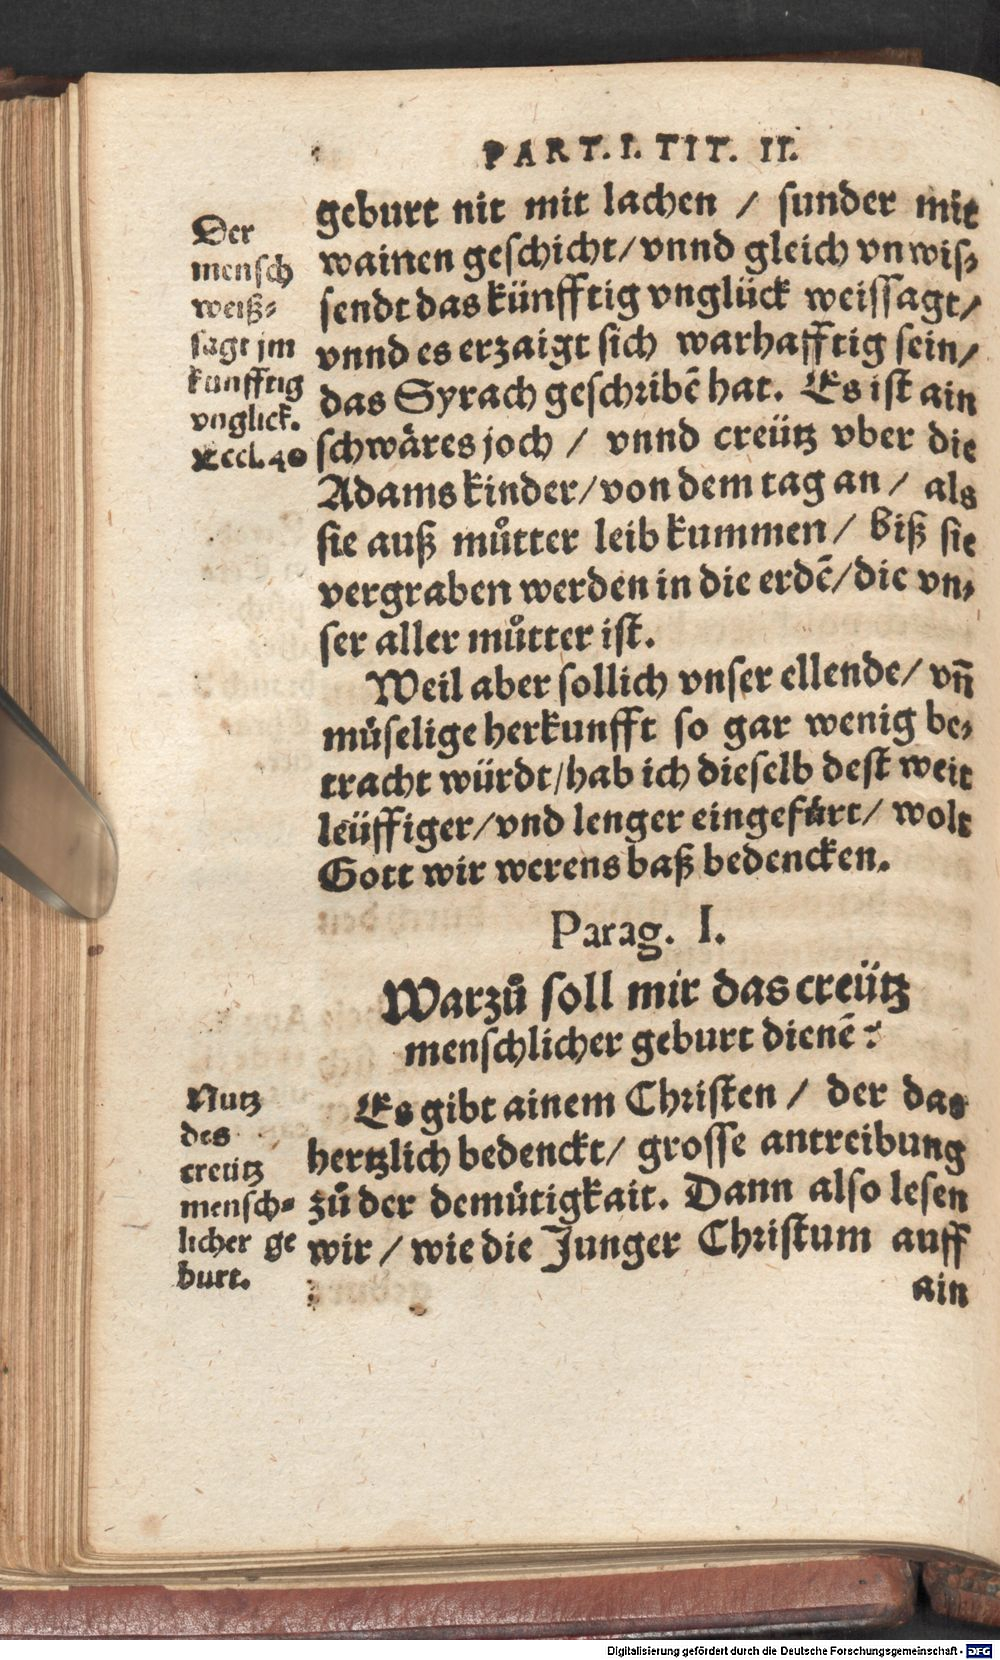 PART. I. TIT. II.
geburt nit mit lachen / sunder mit
wainen geschicht/ vnnd gleich vnwis⸗
sendt das künfftig vnglück weissagt/
vnnd es erzaigt sich warhafftig sein/
das Syrach geschribẽ hat. Es ist ain
schwäres joch / vnnd creütz vber die
Adams kinder/ von dem tag an / als
sie auß můtter leib kummen/ biß sie
vergraben werden in die erdẽ/ die vn⸗
ser aller můtter ist.
Der
mensch
weiß⸗
sagt jm
künfftig
vnglick.
Eccl. 40
Weil aber sollich vnser ellende/ vñ
müselige herkunfft so gar wenig be⸗
tracht würdt/ hab ich dieselb dest weit
leüffiger/ vnd lenger eingefürt/ wolt
Gott wir werens baß bedencken.
Parag. I.
Warzů soll mir das creütz
menschlicher geburt dienẽ?
Nutz
des
creütz
mensch⸗
licher ge
burt.
Es gibt ainem Christen / der das
hertzlich bedenckt/ grosse antreibung
zů der demütigkait. Dann also lesen
wir / wie die Junger Christum auff
ain
Digitalisierung gefördert durch die Deutsche Forschungsgemeinschaft - DFG